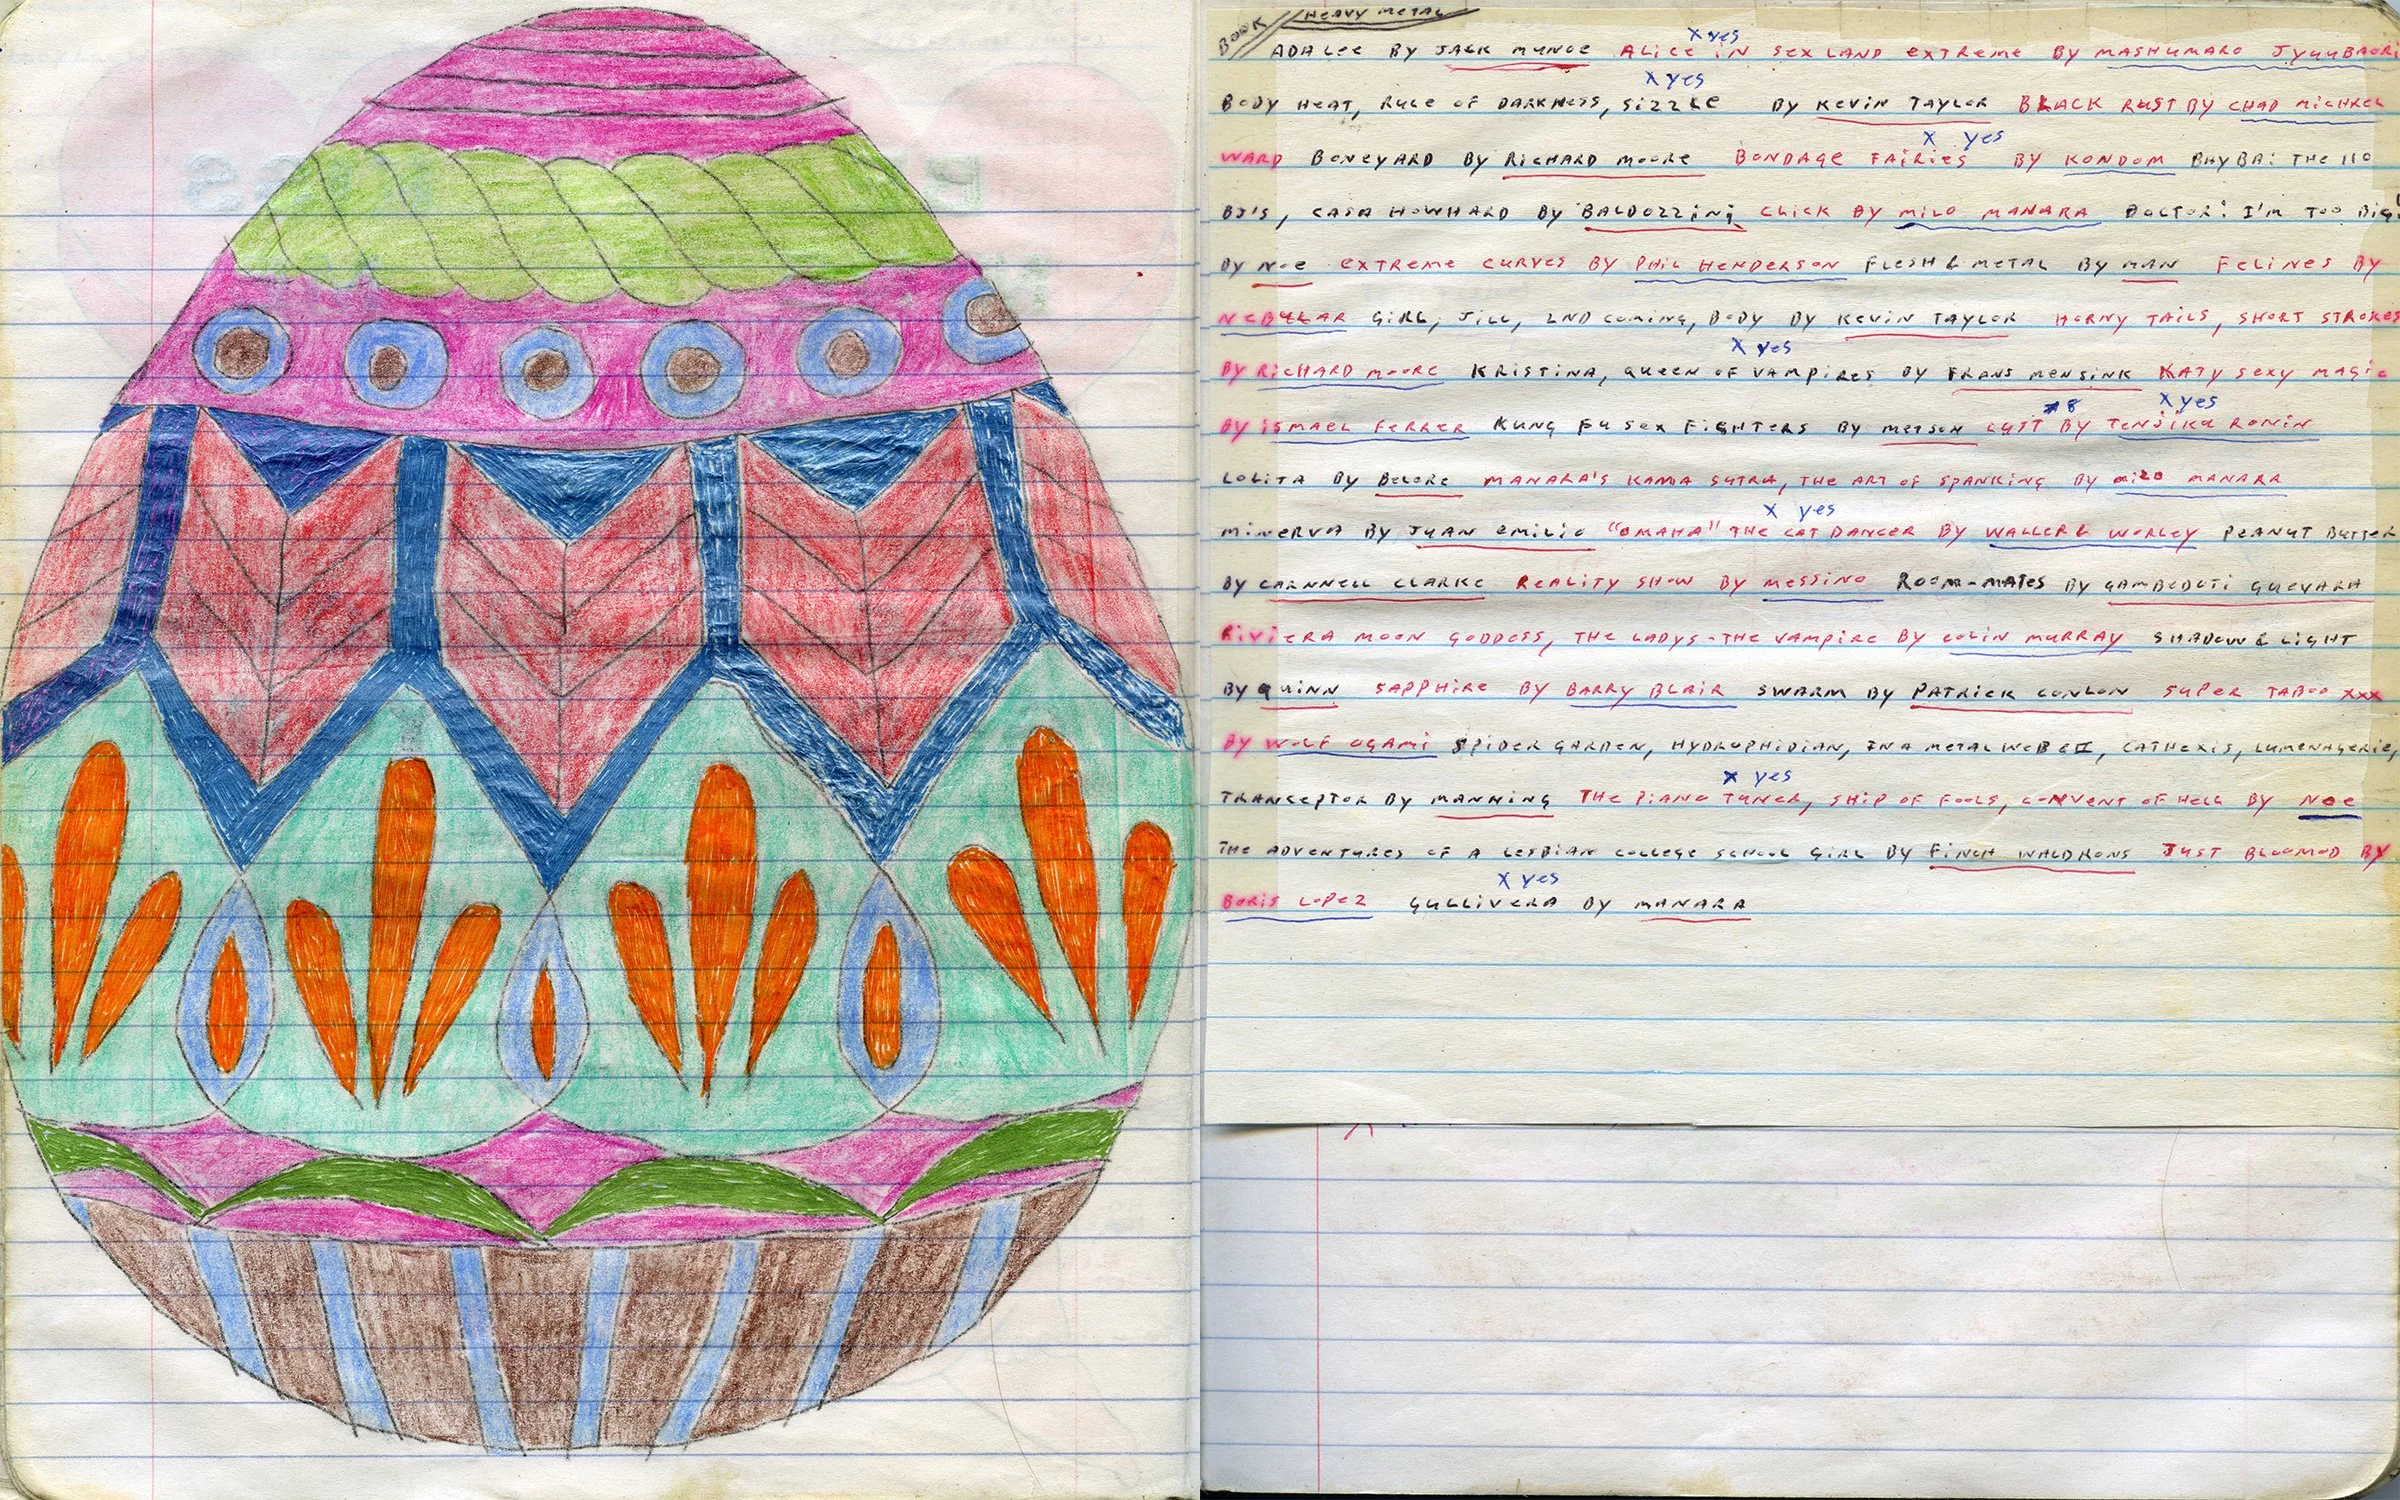 BOOK // HEAVY METAL
X yes
ADA LEE BY JACK MUNOE ALICE IN SEX LAND EXTREME BY MASHUMARO JYUUBAORI
X yes
BODY HEAT, RULE OF DARKNESS, SIZZLE BY KEVIN TAYLOR BLACK RUST BY CHAD MICHAEL
X yes
WARD BONEYARD BY RICHARD MOORE BONDAGE FAIRIES BY KONDOM THE HO
BJ'S, CASA HOWHARD BY BALDOZZINI CLICK BY MILO MANARA DOCTOR! I'M TOO BIG!
BY NOE EXTREME CURVES BY PHIL HENDERSON FLESH & METAL BY MAN FELINES BY
NEBULAR GIRL, JILL, 2ND COMING, BODY BY KEVIN TAYLOR HORNY TAILS, SHORT STROKES
X yes
BY RICHARD MOORE KRISTINA, QUEEN OF VAMPIRES BY FRANS MENSINK KATY SEXY MAGIC
#8 X yes
BY ISMAEL FERRER KUNG FU SEX FIGHTERS BY MERSON LUST BY TENJIKU RONIN
LOLITA BY BELORE MANARA'S KAMA SUTRA, THE ART OF SPANKING BY MILO MANARA
X yes
MINERVA BY JUAN EMILIO "OMAHA" THE CAT DANCER BY WALLER & WORLEY PEANUT BUTTER
BY CARNNELL CLARKE REALITY SHOW BY MESSINO ROOM-MATES BY GAMBEDOTI GUEVARA
RIVIERA MOON GODDESS, THE LADYS-THE VAMPIRE BY COLIN MURRAY SHADOW & LIGHT
BY QUINN SAPPHIRE BY BARRY BLAIR SWARM BY PATRICK CONLON SUPER TABOO XXX
BY WOLF OGAMI SPIDER GARDEN, HYDROPHIDIAN, IN A METAL WEB & II, CATHEXIS, LUMENAGERIE,
X yes
TRANCEPTOR BY MANNING THE PIANO TUNER, SHIP OF FOOLS, CONVENT OF HELL BY NOE
THE ADVENTURES OF A LESBIAN COLLEGE SCHOOL GIRL BY FINCH WALDRONS JUST BLOOMOD BY
X yes
BORIS LOPEZ GULLIVERA BY MANARA